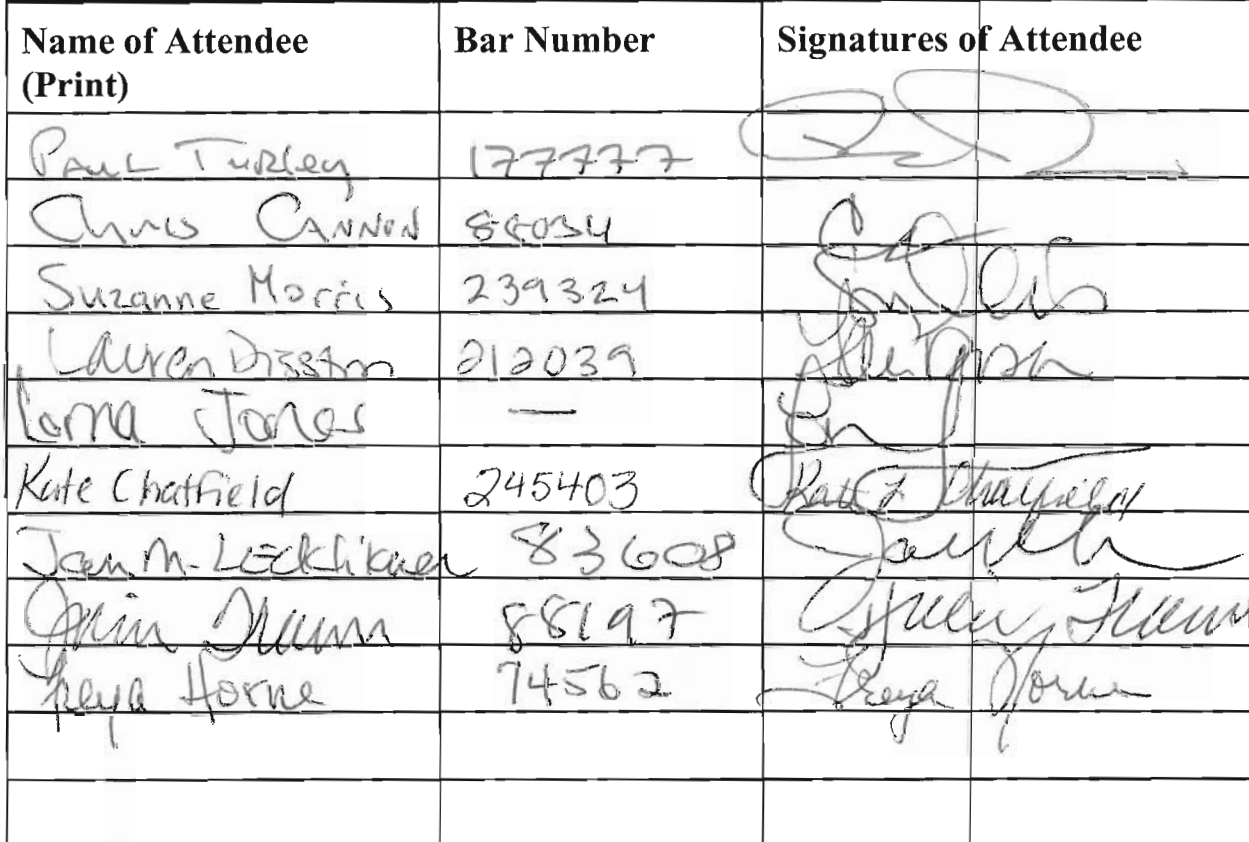 Name of Attendee (Print) Bar Number Signatures of Attendee
Paul Turley 177777
Chris Cannon 88034
Suzanne Morris 239324
Lauren Disston 212039
Lorna Jones —
Kate Chatfield 245403 Kate Chatfield
Jean M. Lecklikner 83608
88197
Freya Horne 74562 Freya Horne